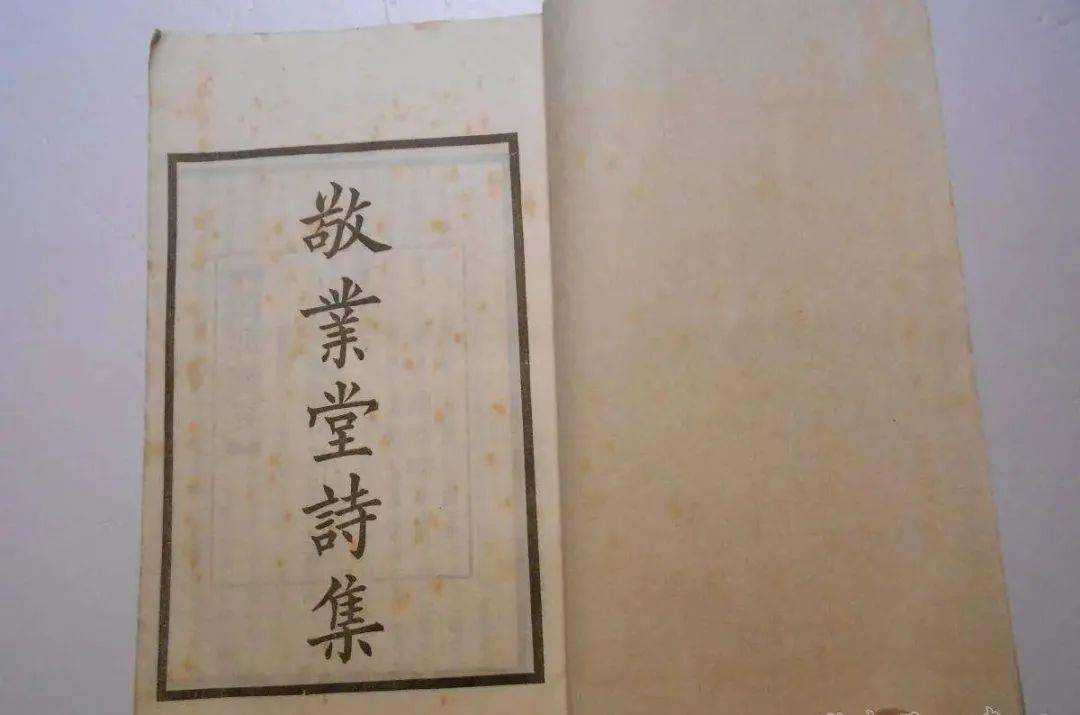 敬業堂詩集